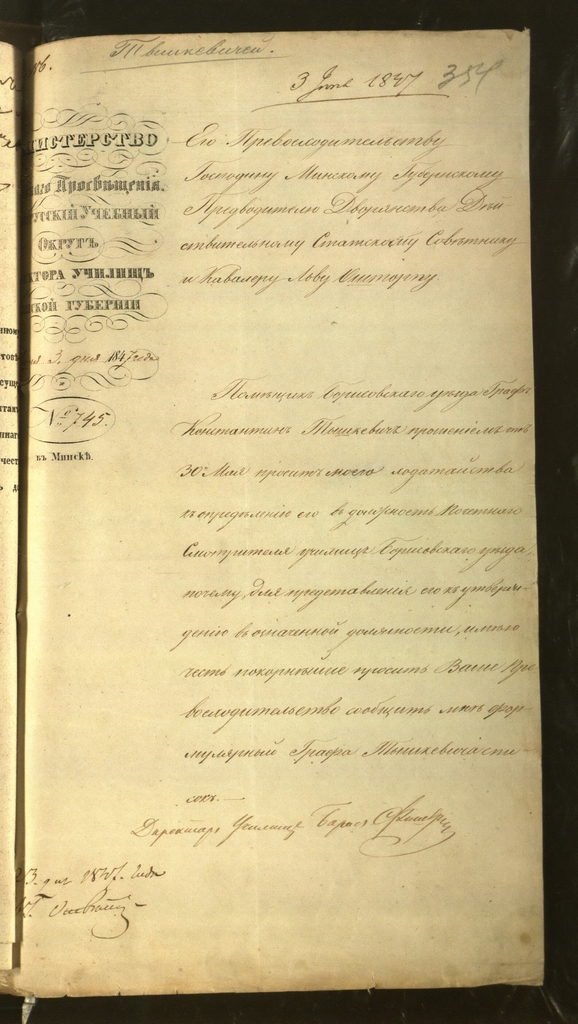 Тышкевичей.
3 Іюня 1847 354
НИСТЕРСТВО
Просвѣщенія.
РУССКІЙ УЧЕБНЫЙ
ОКРУГЪ
КТОРА УЧИЛИЩЪ
СКОЙ ГУБЕРНІИ
3. дня 1847 года
№ 745.
въ Минскѣ.
Его Превосходительству
Господину Минскому Губернскому
Предводителю Дворянства Дѣй
ствительному Статскому Совѣтнику
и Кавалеру Льву Ошторпу
Помѣщикъ Борисовскаго уѣзда Графъ
Константинъ Тышкевичъ прошеніемъ отъ
30го Мая проситъ моего ходатайства
къ опредѣленію его въ должность Почетнаго
Смотрителя училищъ Борисовскаго уѣзда,
почему, для представленія его къ утверж-
денію въ означенной должности, имѣю
честь покорнѣйше просить Ваше Пре
восходительство сообщить мнѣ фор-
мулярный Графа Тышкевича спи
сокъ.—
Директоръ Училищъ Баронъ
3. дня 1847. Года